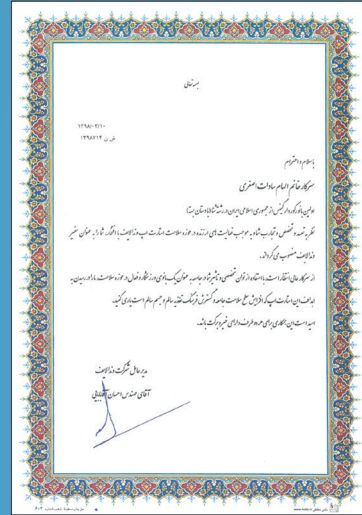 بسمه تعالی
۱۳۹۸/۰۲/۱۰
ش ن ۱۳۹۸۷۱۴
با سلام و احترام
سرکار خانم الهام سادات اصغری
اولین بانوی رکورددار گینس از جمهوری اسلامی ایران در رشته شنا (با دستان بسته)
نظر به تعهد و تخصص و تجارب شما و به موجب فعالیت های ارزنده در حوزه سلامت استارت اپ وندالایف با افتخار، شما را به عنوان سفیر
وندالایف منصوب می گرداند.
از سرکار عالی انتظار است با استفاده از توان تخصصی و تأثیر شما در جامعه به عنوان یک بانوی ورزشکار و فعال در حوزه سلامت، ما را در رسیدن به
اهداف این استارت اپ که افزایش سطح سلامت جامعه و گسترش فرهنگ تغذیه سالم و جسم سالم است یاری کنید.
امید است این همکاری برای هر دو طرف دارای خیر و برکت باشد.
مدیرعامل شرکت وندالایف
آقای مهندس احسان